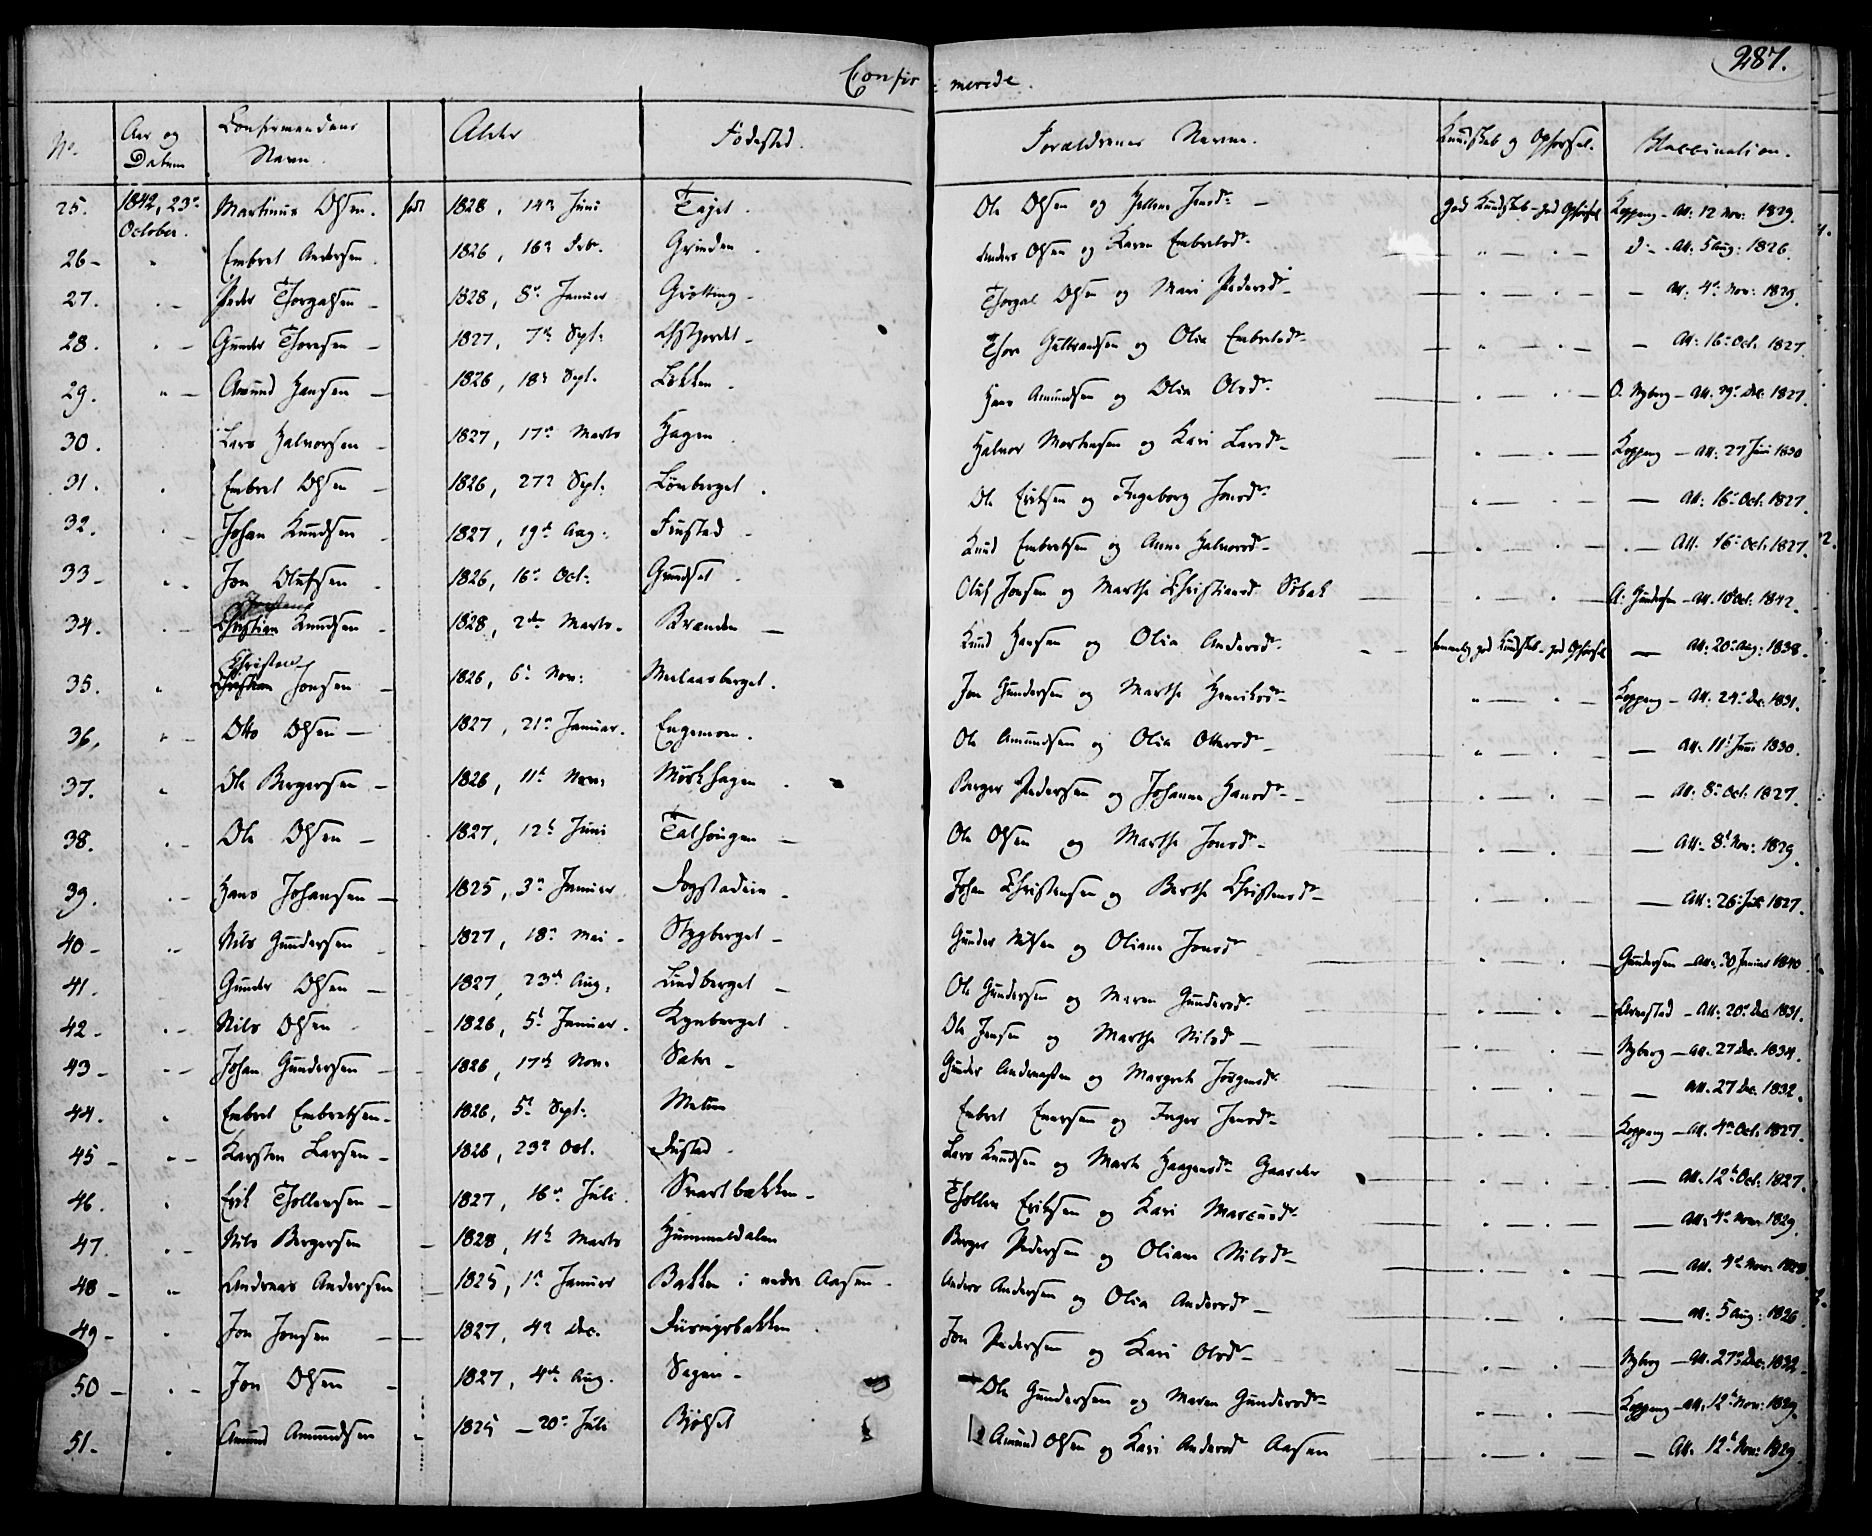 Confir: merede.
287.
No. Aar og Datum Confirmandens Navn. Alder Fødested. Forældrenes Navne. Kundskab og Opførsel. Vaccination.
25. 1842, 23de October. Martinus Olsen. født 1828, 14de Juni Ole Olsen og Jonsdr. god Kundskab - god Opførsel Koppang - Att: 12 Nov: 1829.
26 - " Embret Andersen. 1826, 16de Febr. Grinden. Anders Olsen og Karen Embretsdr. " D: - Att: 5 Aug: 1826.
27. " - Peder Thorgalsen - 1828, 8de Januar Grøtting - Thorgal Olsen og Mari Pedersdr. - Att: 4de Nov: 1829.
28. " - Gunder Thoresen - 1827, 7de Sept: Thore Gulbrandsen og Olia Embretsdr. - Att: 16de Oct: 1827.
29. " - Amund Hansen - 1826, 18de Sept. Løkken. Hans Amundsen og Olia Olsdr. O. Nyborg - Att: 29de Dec: 1827.
30. Lars Halvorsen - 1827, 17de Marts Hagen. Halvor Mortensen og Kari Larsdr. Koppang - Att: 27 Juni 1830
31. " Embret Olsen - 1826, 27de Sept: Lømberget. Ole Eriksen og Ingeborg Jonsdr. - Att: 16de Oct: 1827.
32. " - Johan Knudsen - 1827, 19de Aug: Finstad - Knud Embretsen og Anne Halvorsdr. - Att: 16de Oct: 1827.
33 - " Jon Olufsen - 1826, 16de Oct: Grundset. Oluf Jonsen og Marthe Christiansdr. Sõbak A: Gundersen - Att. 10de Oct: 1842.
34. " - Christian Knudsen - 1828, 2den Marts. Brænden - Knud Hansen og Olia Andersdr. temmelig god Kundskab - god Opførsel - Att: 20de Aug: 1838.
Christen
35. " Christian Jonsen - 1826, 6te Nov: Melaasberget. Jon Gundersen og Marthe Henriksdr. Koppang - Att: 24de Dec: 1831.
36. " - Otto Olsen - 1827, 21de Januar. Engemoen. Ole Amundsen og Olia Ottersdr. - Att: 11te Juni 1830.
37. " Ole Bergersen - 1826, 11te Nov: Mørkhagen. Berger Pedersen og Johanne Hansdr. - Att: 8de Oct: 1827.
38. " - Ole Olsen - 1827, 12te Juni Ole Olsen og Marthe Jonsdr. - Att: 8de Nov: 1829.
39. " - Hans Johansen - 1825, 3de Januar Fogstadeie - Johan Christensen og Berthe Christensdr. - Att: 26de Juli 1827.
40 - " Nils Gundersen - 1827, 18de Mai - Stygberget - Gunder Nilsen og Oliane Jonsdr. Gundersen - Att: 30 Januar 1840
41. " Gunder Olsen - 1827, 23de Aug. Lindberget - Ole Gundersen og Maren Gundersdr. Arnestad - Att: 20de Dec 1831.
42 - " - Nils Olsen - 1826, 5te Januar. Kynberget. Ole Jensen og Marthe Nilsdr. Nyborg - Att: 27 Dec. 1834.
43 - " - Johan Gundersen - 1826, 17de Nov: Sætre - Gunder Andreassen og Margrete Jørgensdr. - Att. 27 Dec. 1832.
44. " Embret Embretsen - 1826, 5te Sept: Melum Embret Enersen og Inger Jonsdr. Koppang - Att. 4de Oct. 1827.
45 - " - Karsten Larsen - 1826, 23de Oct. Lars Knudsen og Marte Haagensdr. Gaarder - Att. 12te Oct. 1827.
46. " Erik Thollefsen - 1827, 16de Juli. Svartbækken - Tholler Eriksen og Kari Marcusdr. - Att: 4de Nov: 1829.
47. " - Nils Bergersen - 1828, 11te Marts Hummeldalen Berger Pedersen og Oliane Nilsdr. - Att. 4de Nov: 1828.
48 - " Andreas Andersen - 1825, 1ste Januar Bakken i nedre Aasen. Anders Andersen og Olia Andersdr. - Att: 5 Aug: 1826.
49 - " Jon Jonsen - 1827, 4de Dec. Jon Pedersen og Kari Olsdr. Nyborg - Att. 27de Dec. 1832
50 - " - Jon Olsen - 1827, 4de Aug. Sagen - Ole Gundersen og Maren Gundersdr. Koppang - Att: 12te Nov: 1829.
51. " Amund Amundsen - 1825 - 20de Juli Bjølset Amund Olsen og Kari Andersdr. Aasen - Att. 12te Nov: 1829.